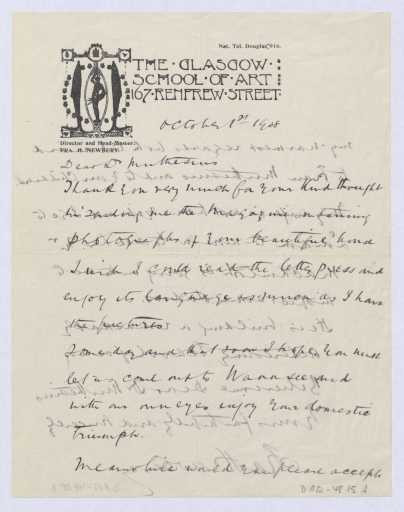 Nat. Tel. Douglas,
THE·GLASGOW·
SCHOOL·OF·ART
167·RENFREW·STREET·
Director and Head-Master:
FRA. H. NEWBERY.
October 1st 1908
Dear Dr Muthesius
Thank you very much for your kind thought
in sending me the Magazine containing
photographs of your beautiful home
I wish I could read the letterpress and
enjoy its as much as I have
the pictures
Some day and that soon I hope you must
let us come out to Wannsee and
with our own eyes enjoy your domestic
triumph.
Meanwhile would you please accept